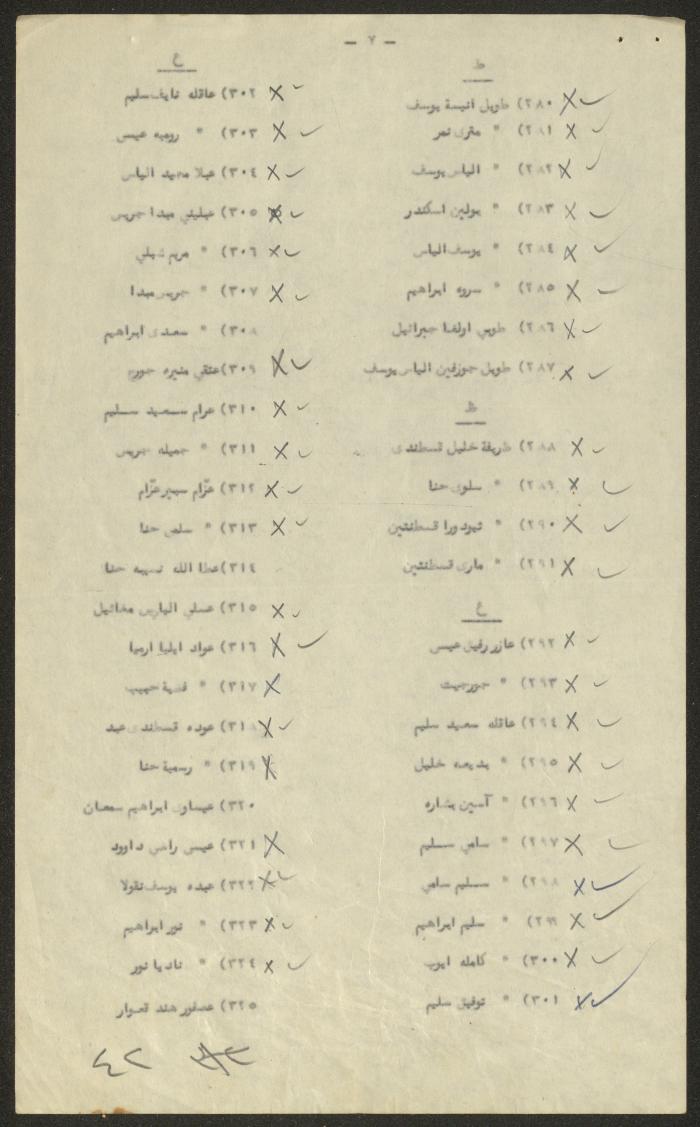 — ٧ —
ط
٢٨٠) طويل أنيسة يوسف
٢٨١) " مترى نمر
٢٨٢) " الياس يوسف
٢٨٣) " بولين اسكندر
٢٨٤) " يوسف الياس
٢٨٥) " سروه ابراهيم
٢٨٦) طويل اولغا جبرائيل
٢٨٧) طويل جوزفين الياس يوسف
ظ
٢٨٨) ظريفة خليل قسطندى
٢٨٩) " سلوى حنا
٢٩٠) " تيودورا قسطنطين
٢٩١) " مارى قسطنطين
ع
٢٩٢) عازر رفيق عيسى
٢٩٣) " جورجيت
٢٩٤) عاقله سعيد سليم
٢٩٥) " بديعه خليل
٢٩٦) " آسين بشاره
٢٩٧) " سامي سليم
٢٩٨) " سليم سامي
٢٩٩) " سليم ابراهيم
٣٠٠) " كامله ايوب
٣٠١) " توفيق سليم
ع
٣٠٢) عاقله نايف سليم
٣٠٣) " روميه عيسى
٣٠٤) عبلا مجيد الياس
٣٠٥) عبليني مبدا جريس
٣٠٦) " مريم شبلي
٣٠٧) " جريس مبدا
٣٠٨) " سعدى ابراهيم
٣٠٩) عتقي منيره جورج
٣١٠) عرام سعيد سليم
٣١١) " جميله جريس
٣١٢) عزّام سمير عزّام
٣١٣) " سلمى حنا
٣١٤) عطا الله نسيبه حنا
٣١٥) عسلي الياس مخائيل
٣١٦) عواد ايليا ارميا
٣١٧) " فضية حبيب
٣١٨) عوده قسطندى عبد
٣١٩) " رسمية حنا
٣٢٠) عيساوى ابراهيم سمعان
٣٢١) عيسى راضي داوود
٣٢٢) عبده يوسف نقولا
٣٢٣) " نور ابراهيم
٣٢٤) " ناديا نور
٣٢٥) عصفور هند قعوار
٤٢